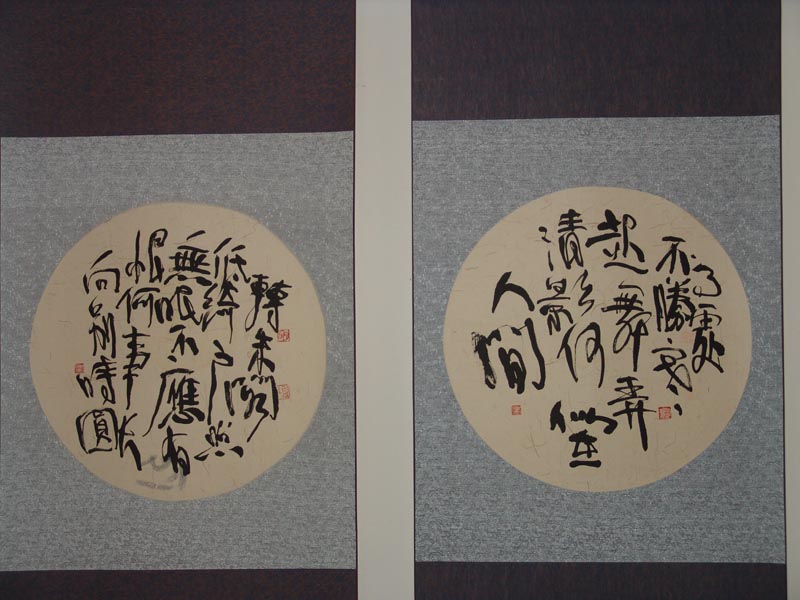 高處
不勝寒
起舞弄
清影何似在
人間
轉朱閣
低綺戶照
無眠不應有
恨何事長
向別時圓